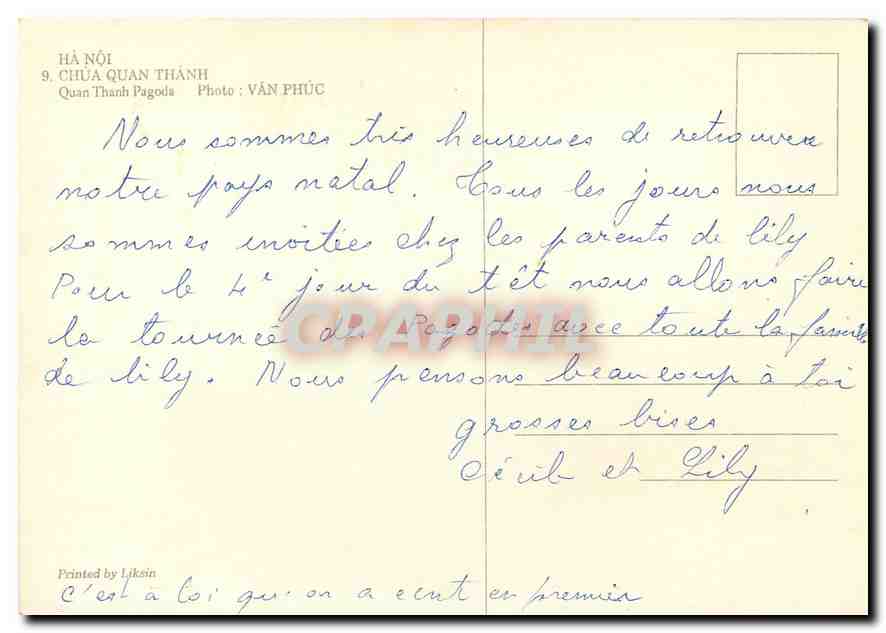 HÀ NỘI
9. CHÙA QUAN THÁNH
Quan Thanh Pagoda Photo : VĂN PHÚC
Nous sommes très heureuses de retrouver
notre pays natal. Tous les jours nous
sommes invitées chez les parents de lily
Pour le 4e jour du têt nous allons faire
la tournée des Pagodes avec toute la famille
de lily. Nous pensons beaucoup à toi
grosses bises
Cécile et Lily
CPAPHIL
Printed by Liksin
c'est à toi qu'on a écrit en premier